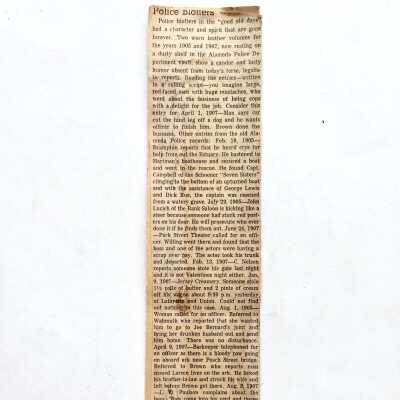 Police Blotters
Police blotters in the "good old days"
had a character and spirit that are gone
forever. Two worn leather volumes for
the years 1905 and 1907, now resting on
a dusty shelf in the Alameda Police De-
partment vault, show a candor and lusty
humor absent from today's terse, legalis-
tic reports. Reading the entries—written
in a rolling script—you imagine large,
red-faced men with huge mustaches, who
went about the business of being cops
with a delight for the job. Consider this
entry for April 1, 1907—Man says cur
cut the hind leg off a dog and he wants
officer to finish him. Brown done the
business. Other entries from the old Ala-
meda Police records: Feb. 19, 1905—
Brampton reports that he heard crys for
help from out the Estuary. He hastened to
Hartman's boathouse and secured a boat
and went to the rescue. He found Capt.
Campbell of the Schooner "Seven Sisters"
clinging to the bottom of an upturned boat
and with the assistance of George Lewis
and Dick Rue, the captain was rescued
from a watery grave. July 29, 1905—John
Lucich of the Bank Saloon is kicking like a
steer because someone had stuck red post-
ers on his door. He will prosecute who ever
done it if he finds them out. June 26, 1907
—Park Street Theater called for an offi-
cer. Wilting went there and found that the
boss and one of the actors were having a
scrap over pay. The actor took his trunk
and departed. Feb. 13, 1907—C. Nelson
reports someone stole his gate last night
and it is not Valentines night either. Jan.
9, 1907—Jersey Creamery. Someone stole
pile of butter and 2 pints of cream
off his wagon about 5:30 p.m. yesterday,
at Lafayette and Union. Could not find
out nothing in this case. Aug. 1, 1905—
Woman called for an officer. Referred to
Walmuth who reported that she wanted
him to go to Joe Bernard's joint and
bring her drunken husband out and send
him home. There was no disturbance.
April 9, 1907—Barkeeper telephoned for
an officer as there is a bloody row going
on aboard ark near Peach Street bridge.
Referred to Brown who reports man
named Larsen lives on the ark. He licked
his brother-in-law and struck his wife and
left before Brown got there. Aug. 2, 1907
Paulson complains about the